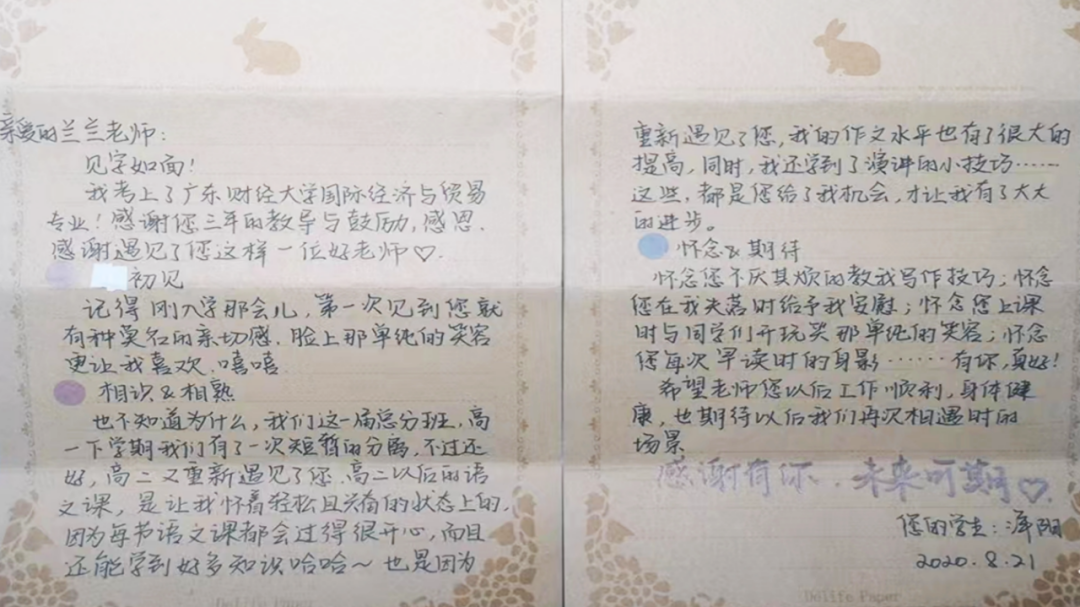 亲爱的兰兰老师：
见字如面！
我考上了广东财经大学国际经济与贸易
专业！感谢您三年的教导与鼓励，感恩、
感谢遇见了您这样一位好老师♡.
初见
记得刚入学那会儿，第一次见到您就
有种莫名的亲切感，脸上那单纯的笑容
更让我喜欢，嘻嘻.
相识&相熟
也不知道为什么，我们这一届总分班，高
一下学期我们有了一次短暂的分离，不过还
好，高二又重新遇见了您、高二以后的语
文课，是让我怀着轻松且兴奋的状态上的，
因为每节语文课都会过得很开心，而且
还能学到好多知识哈哈～也是因为
重新遇见了您，我的作文水平也有了很大的
提高，同时，我还学到了演讲的小技巧……
这些，都是您给了我机会，才让我有了大大
的进步。
怀念&期待
怀念您不厌其烦的教我写作技巧；怀念
您在我失落时给予我安慰；怀念您上课
时与同学们开玩笑那单纯的笑容；怀念
您每次早读时的身影……有你，真好！
希望老师您以后工作顺利，身体健
康，也期待以后我们再次相遇时的
场景
感谢有你、未来可期♡.
您的学生：泽阳
2020.8.21
Delife Paper
Delife Paper